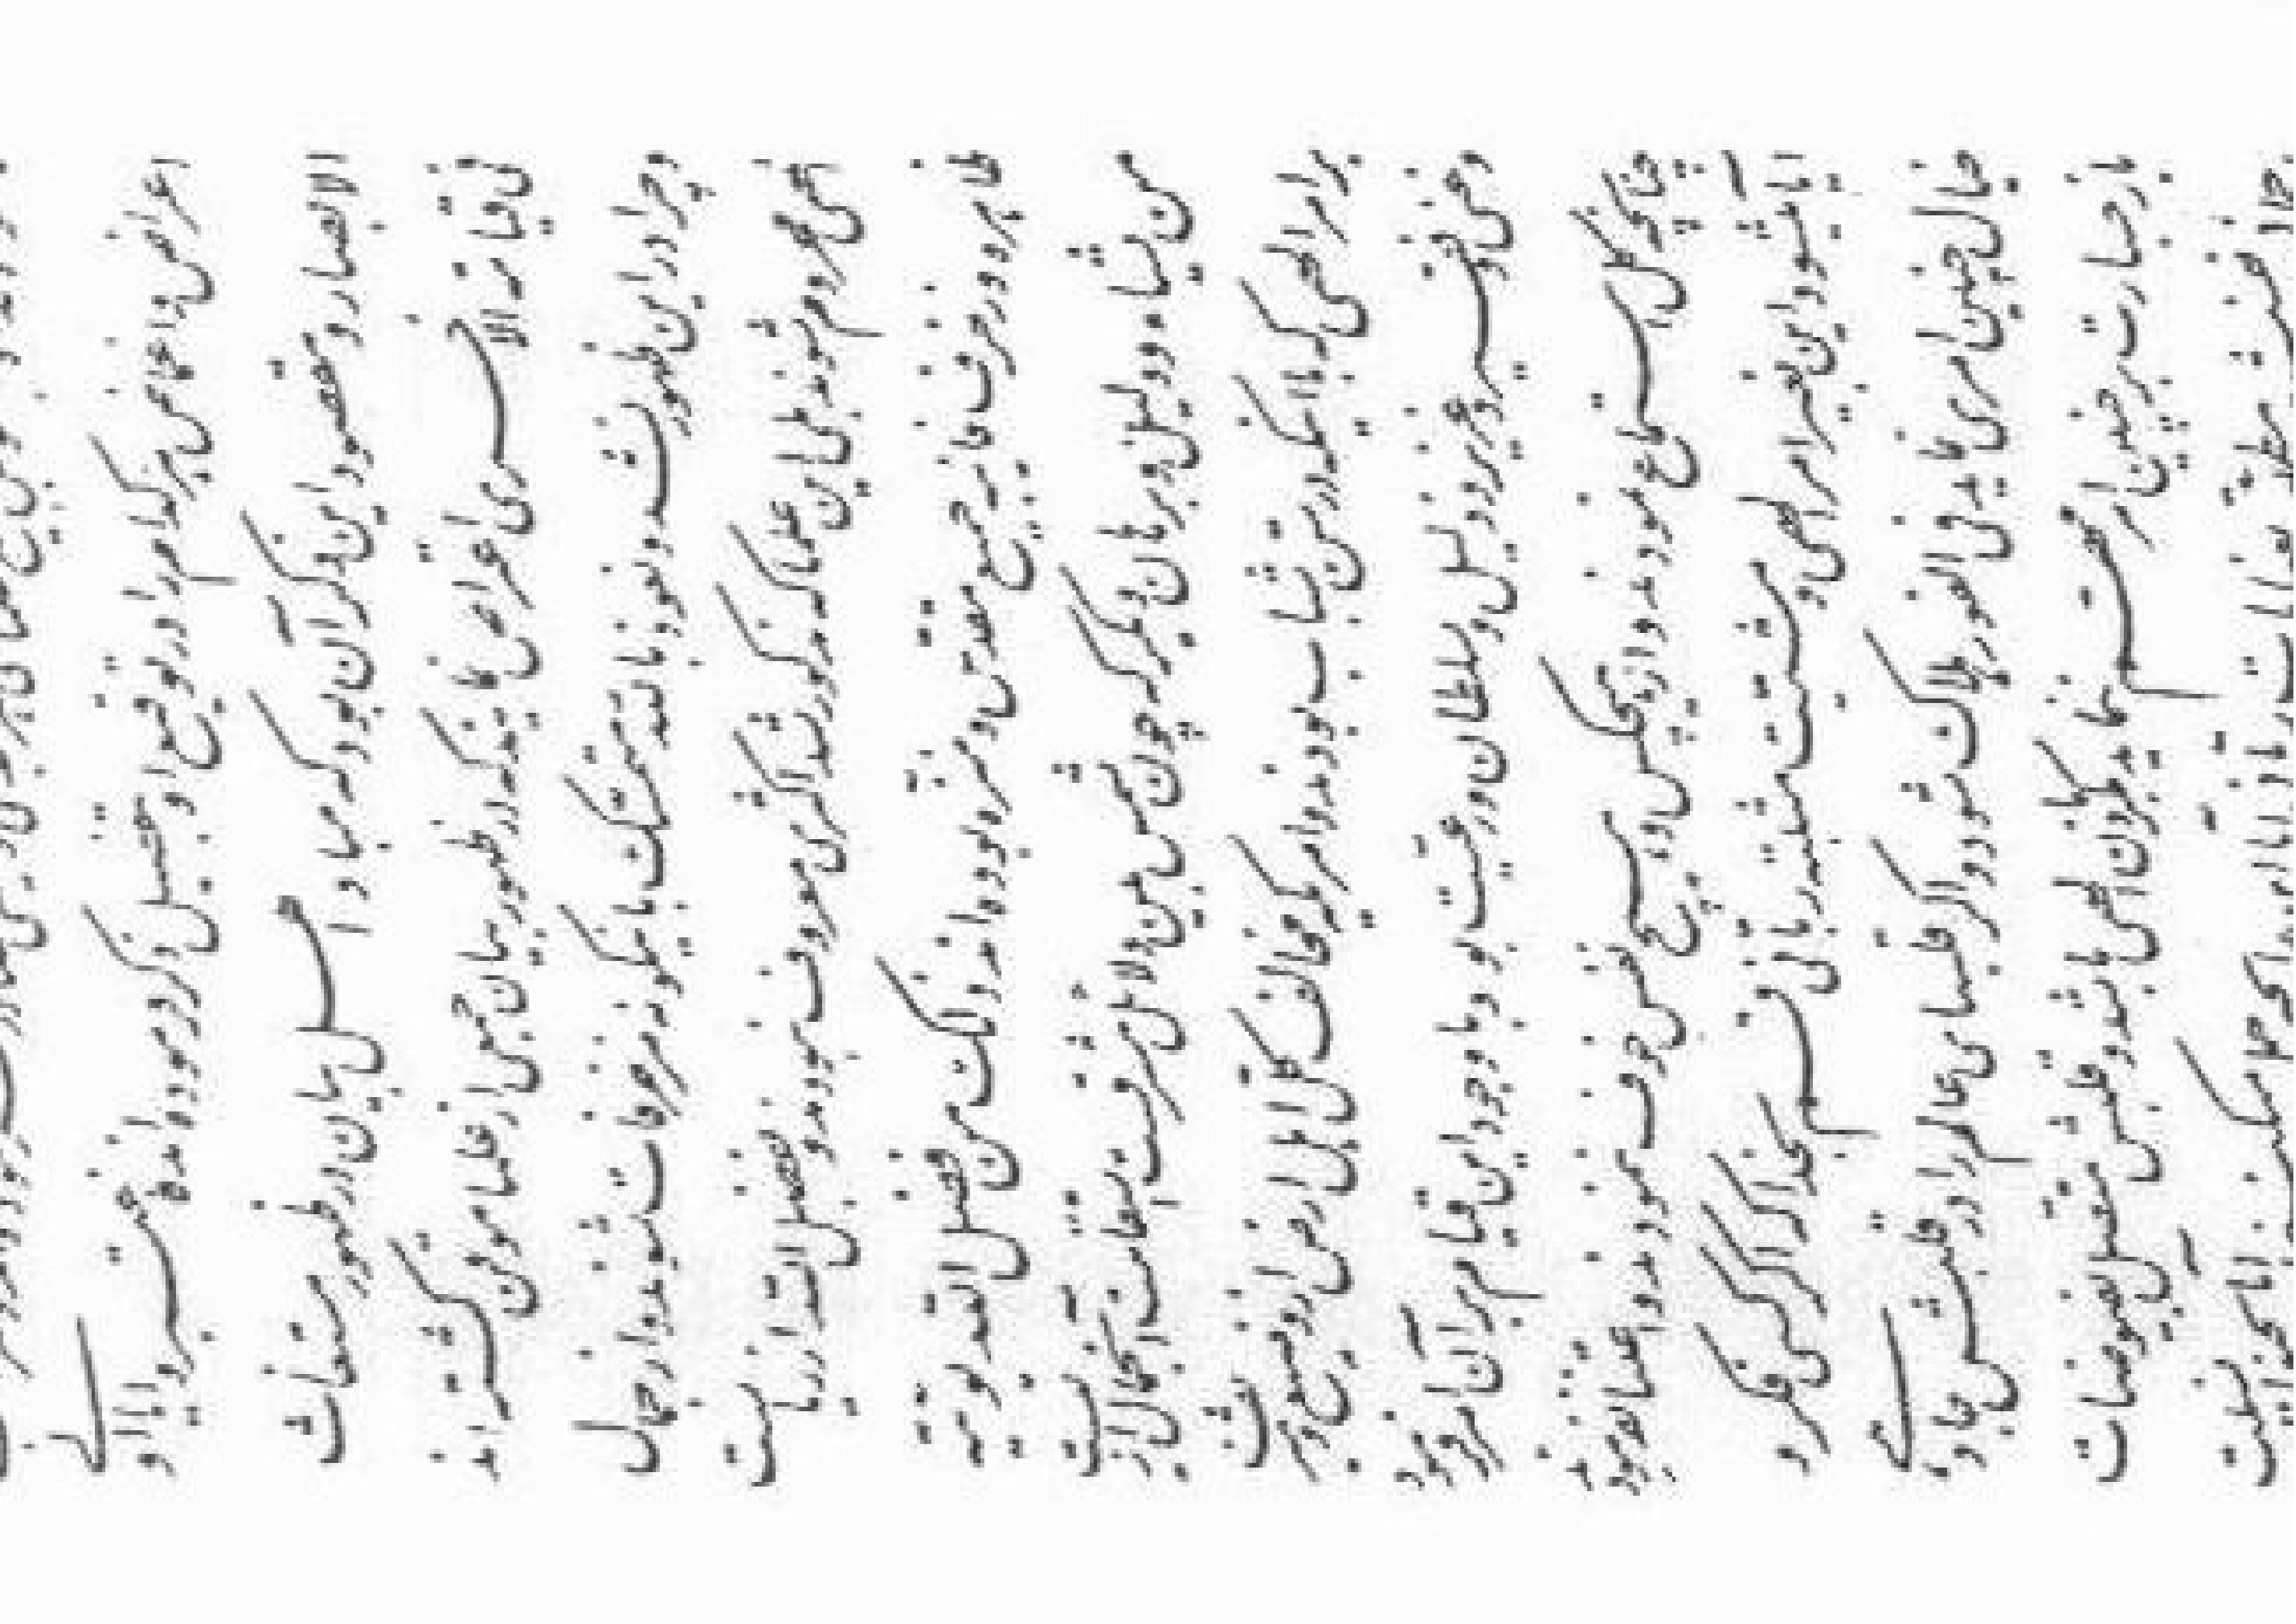 اعراض و اغماض هر کدام را در توقیع او تفصیل ذکر فرموده‌اند فاعتبروا یا اولی
الابصار و مقصود از این ذکر آن بود که مبادا اهل بیان در ظهور مستغاث
فی قیامة الاخری اعتراض نمایند که در ظهور بیان جمعی از علما موقن گشته‌اند
و چرا در این ظهور نشدند و نعوذ بالله متمسک باینگونه مزخرفات شوند و از جمال
الهی محروم شوند بلی این علما که مذکور شد اکثری معروف نبودند و بفضل الله از ریاست
ظاهره و زخرف فانیه جمیع مقدس و منزه بوده‌اند و ذلک من فضل الله یؤتیه
من یشاء و دلیل و برهان دیگر که چون شمس بین دلائل مشرق است استقامت آن جمال ازلیست
بر امر الهی که با اینکه در سن شباب بودند و امری که مخالف کل اهل ارض از وضیع و شریف
و غنی و فقیر و عزیز و ذلیل و سلطان و رعیت بود با وجود این قیام بر آن امر فرمود
چنانچه کل استماع نمودند و از هیچکس و هیچ نفس خوف ننمودند و اعتنا نفرمودند
آیا میشود این بغیر امر الهی و مشیت مثبته ربانی قسم بخدا که اگر کسی فکر و
خیال چنین امری نماید فی الفور هلاک شود و اگر قلبهای عالم را در قلبش جا دهی
باز جسارت بر چنین امر مهم ننماید مگر باذن الهی باشد و قلبش متصل بفیوضات
بعنایات ربانی آیا این را بچه حمل میکنند آیا بجنون نسبت